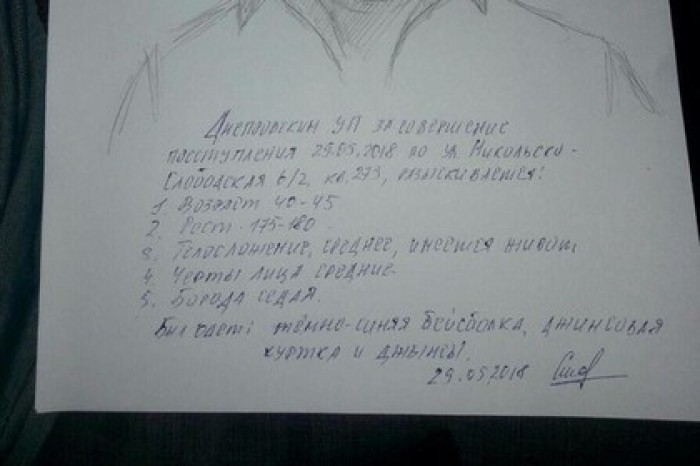 Днепровским УП за совершение
престступления 29.05.2018 по ул. Никольско-
Слободская 6/2, кв. 273, разыскивается:
1. Возраст 40-45
2. Рост 175-180
3. Телосложение, среднее, имеется живот
4. Черты лица средние.
5. Борода седая.
Был одет: тёмно-синяя бейсболка, джинсовая
куртка и джынсы.
29.05.2018